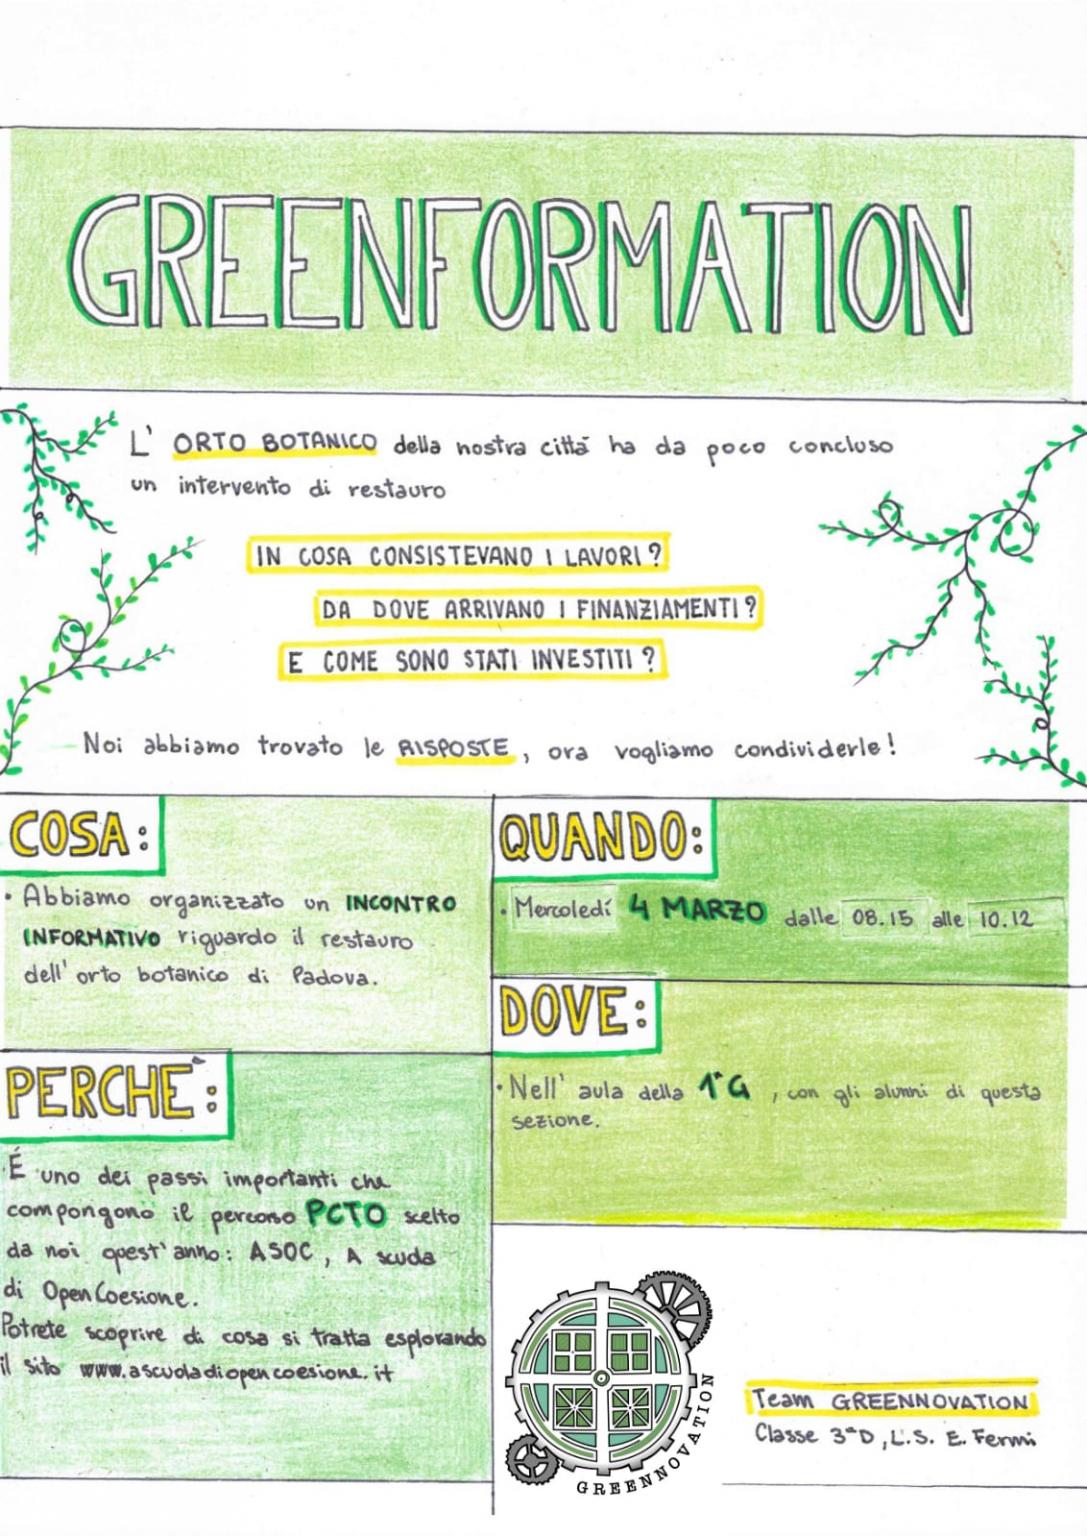 GREENFORMATION
L' ORTO BOTANICO della nostra città ha da poco concluso
un intervento di restauro
IN COSA CONSISTEVANO I LAVORI?
DA DOVE ARRIVANO I FINANZIAMENTI?
E COME SONO STATI INVESTITI?
Noi abbiamo trovato le RISPOSTE, ora vogliamo condividerle!
COSA:
• Abbiamo organizzato un INCONTRO
INFORMATIVO riguardo il restauro
dell'orto botanico di Padova.
PERCHÈ:
É uno dei passi importanti che
compongono il percorso PCTO scelto
da noi quest'anno: ASOC, A scuda
di OpenCoesione.
Potrete scoprire di cosa si tratta esplorando
il sito www.ascuoladiopencoesione.it
QUANDO:
• Mercoledí 4 MARZO dalle 08.15 alle 10.12
DOVE:
• Nell' aula della 1ªG, con gli alunni di questa
sezione.
GREENNOVATION
Team GREENNOVATION
Classe 3ªD, L.S. E. Fermi